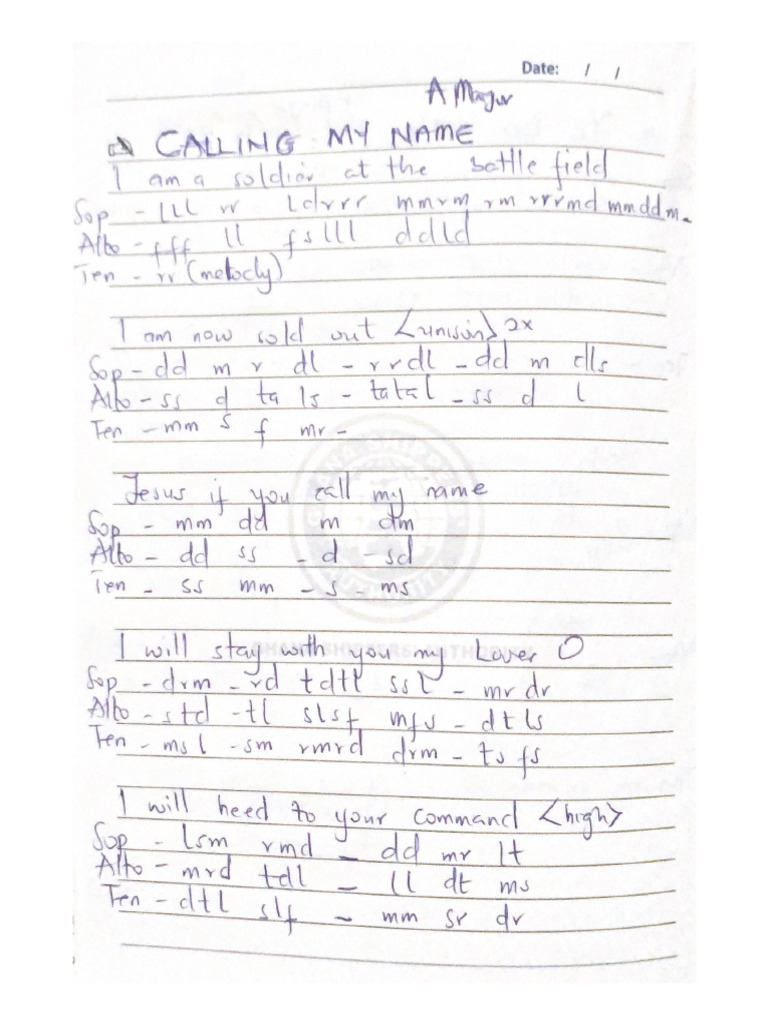 Date: / /
A Major
CALLING MY NAME
I am a soldier at the battle field
Sop - lll rr ldrrr mmrm rm rrrmd mmddm.
Alto - fff ll fslll ddld
Ten - rr (melody)
I am now sold out <unison> 2x
Sop - dd m r dl - rrdl - dd m dls
Alto - ss d ta ls - tatal - ss d l
Ten - mm s f mr -
Jesus if you call my name
Sop - mm dd m dm
Alto - dd ss - d - sd
Ten - ss mm - s - ms
I will stay with you my Lover O
Sop - drm - rd tdtl ssl - mr dr
Alto - std - tl slsf mfs - dtls
Ten - msl - sm rmrd drm - ts fs
I will heed to your command <high>
Sop - lsm rmd - dd mr lt
Alto - mrd tdl - ll dt ms
Ten - dtl slf - mm sr dr